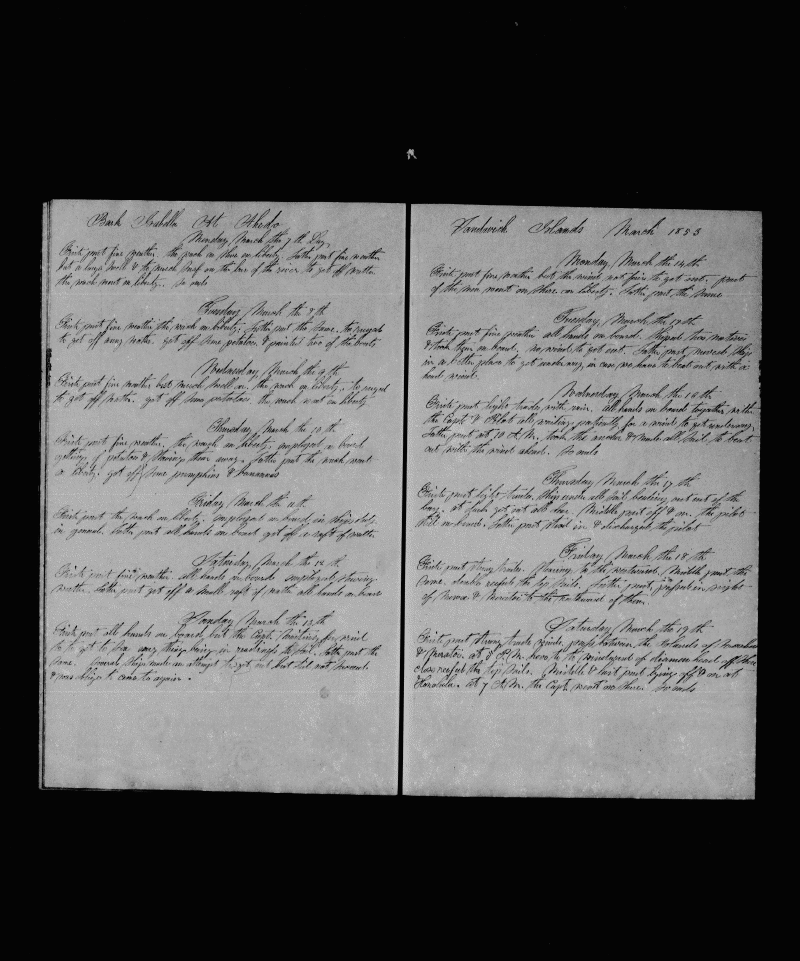 Bark Isabella At Hhedo
Monday March the 7th Day
First part fine weather. the watch on shore on liberty. Latter part fine weather
but a large swell & to much surf on the bar of the river to get off water
the watch went on liberty. So ends
Tuesday March the 8th
First part fine weather the watch on liberty. Latter part the same.
to get off any water. got off some potatoes & painted two of the boats
Wednesday March the 9th
First part fine weather but much swell on. the watch on liberty. to
to get off water. got off some potatoes. the watch went on liberty
Thursday March the 10th
First part fine weather. the watch on liberty. employed on board
getting of potatoes & stowing them away. Latter part the watch went
on liberty. got off some pumpkins & bananas
Friday March the 11th
First part the watch on liberty. employed on board in ships duty
in general. Latter part all hands on board got off a raft of water
Saturday March the 12th
First part fine weather. all hands on board employed stowing
water. Latter part got off a small raft of water all hands on board
Sunday March the 13th
First part all hands on board, but the Capt. waiting for wind
to get to Sea. every thing being in readiness to start. Latter part the
same. Several Ships made an attempt to get out but did not succeed
& was oblige to come to again.
Sandwich Islands March 1853
Monday March the 14th
First part fine weather but the wind not fair to get out. part
of the men went on shore on liberty. Latter part the same
Tuesday March the 15th
First part fine weather all hands on board. Shiped two natives
& took them on board. no wind to get out. Latter part moved Ship
in a better place to get underway in case we have to beat out with a
head wind.
Wednesday March the 16th
First part light trades, with rain. all hands on board together with
the Capt & Pilot all waiting patiently for a wind to get underway.
Latter part at 10 A.M. took the anchor & made all Sail to beat
out with the wind ahead. So ends
Thursday March the 17th
First part light trades. Ship under all Sail beating out of the
bay. at dark got out all clear. Middle part off & on. the pilot
still on board. Latter part Stood in & discharged the pilot
Friday March the 18th
First part strong trades. Steering to the westward. Middle part the
same. double reefed the top Sails. Latter part passed in sight
of Mowee & to the of them.
Saturday March the 19th
First part strong trade winds, pass between the Islands of
& at 8 P.M. hove to to windward of diamon head off shore
close reefed the top Sails. Middle & last part lying off & on at
Honolulu. at 7 A.M. the Capt. went on shore. So ends